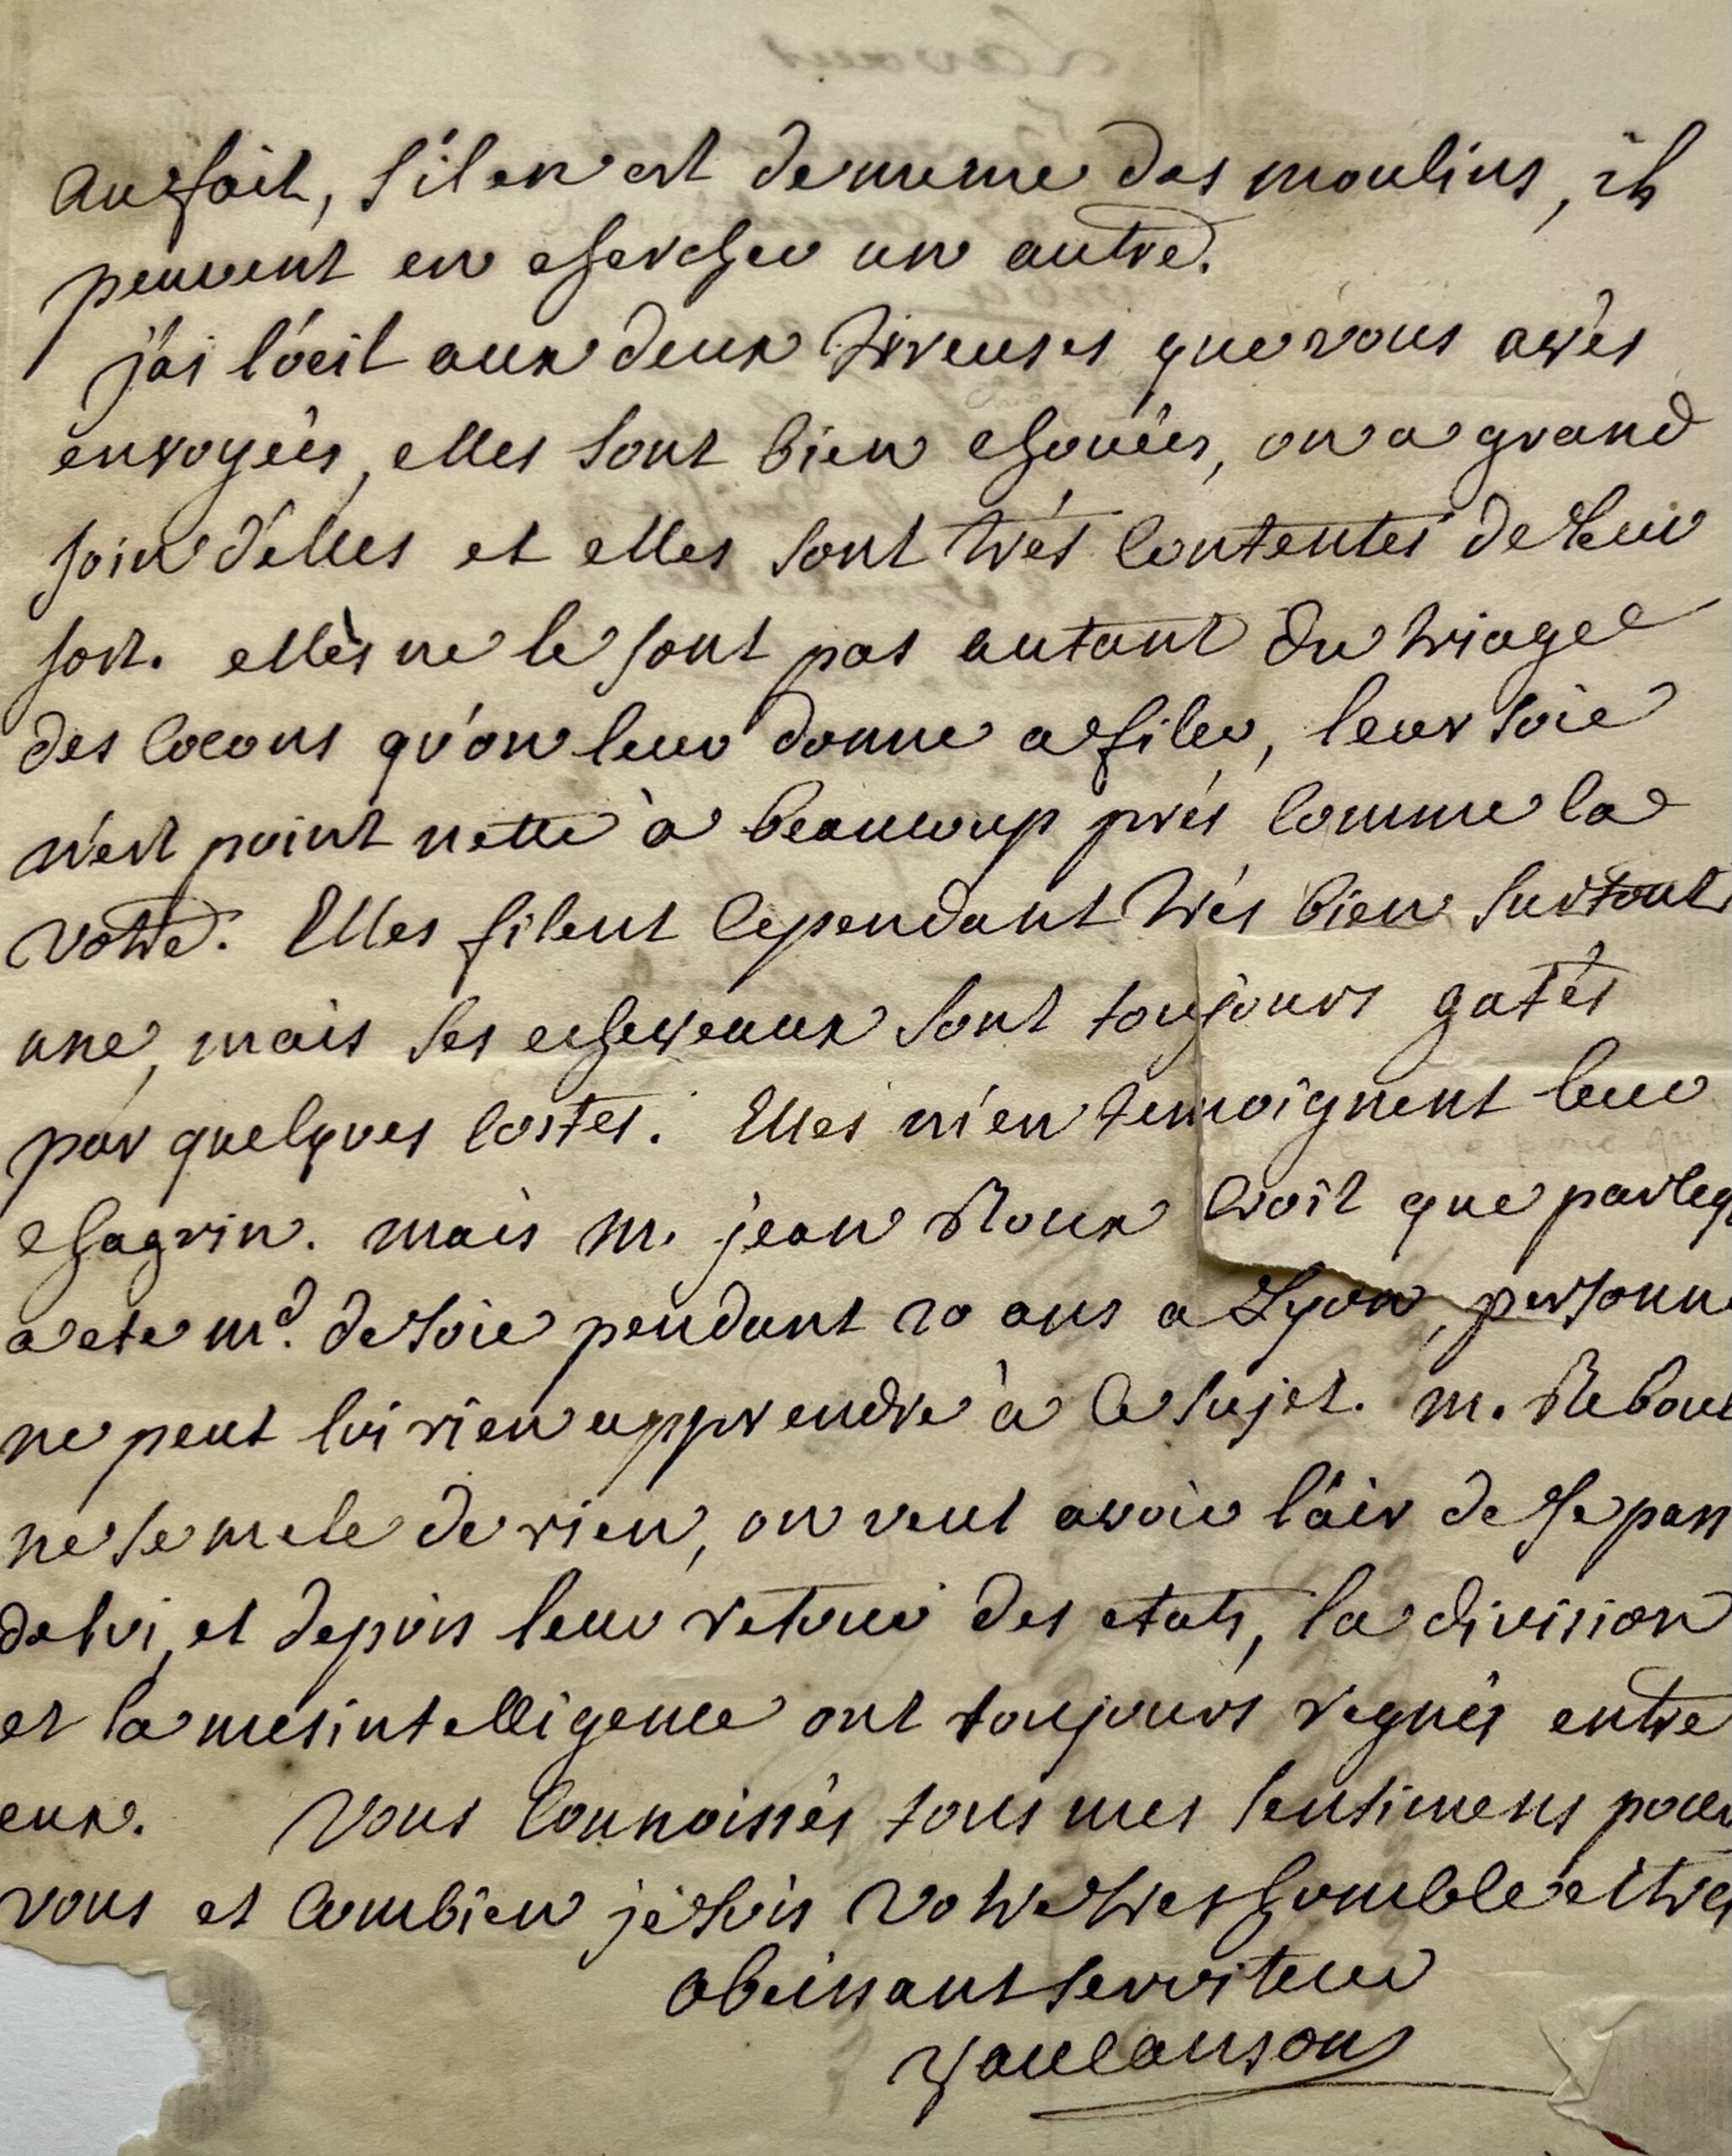 au fait, s'il en est de meme des moulins, ils
peuvent en chercher un autre.
j'ai l'oeil aux deux tireuses que vous avés
envoyées, elles sont bien choyées, on a grand
soin d'elles et elles sont trés contentes de leur
sort. elles ne le sont pas autant du triage
des cocons qu'on leur donne a filer, leur soie
n'est point nette à beaucoup prés comme la
votre. Elles filent cependant trés bien surtout
une, mais ses echeveaux sont toujours gatés
par quelques costes. Elles m'en temoignent leur
chagrin. mais m. jean Roux croit que parceq
a ete md. de soie pendant 20 ans a Lyon, personne
ne peut lui rien apprendre à ce sujet. m. Reboul
ne se mele de rien, on veut avoir l'air de se pass
de lui, et depuis leur retour des etats, la division
et la mésintelligence ont toujours regnés entre
eux. Vous connoissés tous mes sentimens pour
vous et combien je suis votre tres humble et tres
obeissant serviteur